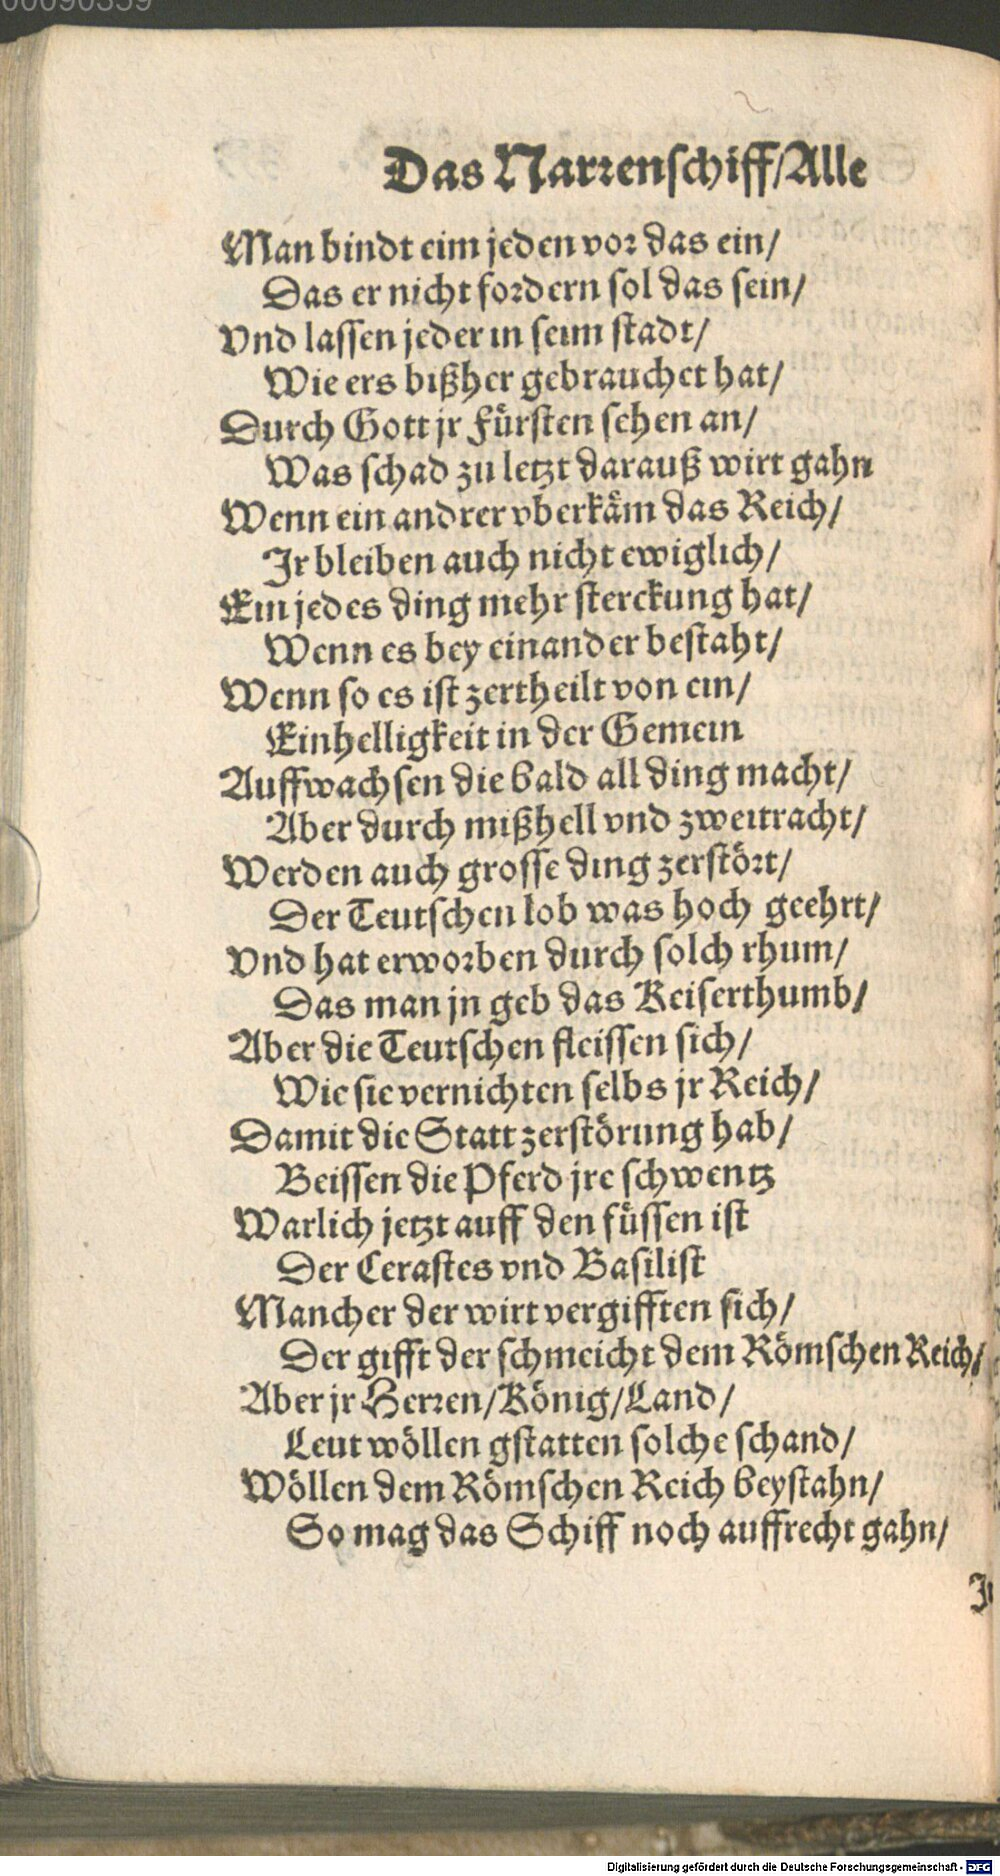 00090359
Das Narrenschiff/Alle
Man bindt eim jeden vor das ein/
Das er nicht fordern sol das sein/
Vnd lassen jeder in seim stadt/
Wie ers bißher gebrauchet hat/
Durch Gott jr Fürsten sehen an/
Was schad zu letzt darauß wirt gahn
Wenn ein andrer vberkäm das Reich/
Ir bleiben auch nicht ewiglich/
Ein jedes ding mehr sterckung hat/
Wenn es bey einander bestaht/
Wenn so es ist zertheilt von ein/
Einhelligkeit in der Gemein
Auffwachsen die bald all ding macht/
Aber durch mißhell vnd zweitracht/
Werden auch grosse ding zerstört/
Der Teutschen lob was hoch geehrt/
Vnd hat erworben durch solch rhum/
Das man jn geb das Keiserthumb/
Aber die Teutschen fleissen sich/
Wie sie vernichten selbs jr Reich/
Damit die Statt zerstörung hab/
Beissen die Pferd jre schwentz
Warlich jetzt auff den füssen ist
Der Cerastes vnd Basilist
Mancher der wirt vergifften sich/
Der gifft der schmeicht dem Römschen Reich/
Aber jr Herren/König/Land/
Leut wöllen gstatten solche schand/
Wöllen dem Römschen Reich beystahn/
So mag das Schiff noch auffrecht gahn/
Digitalisierung gefördert durch die Deutsche Forschungsgemeinschaft - DFG